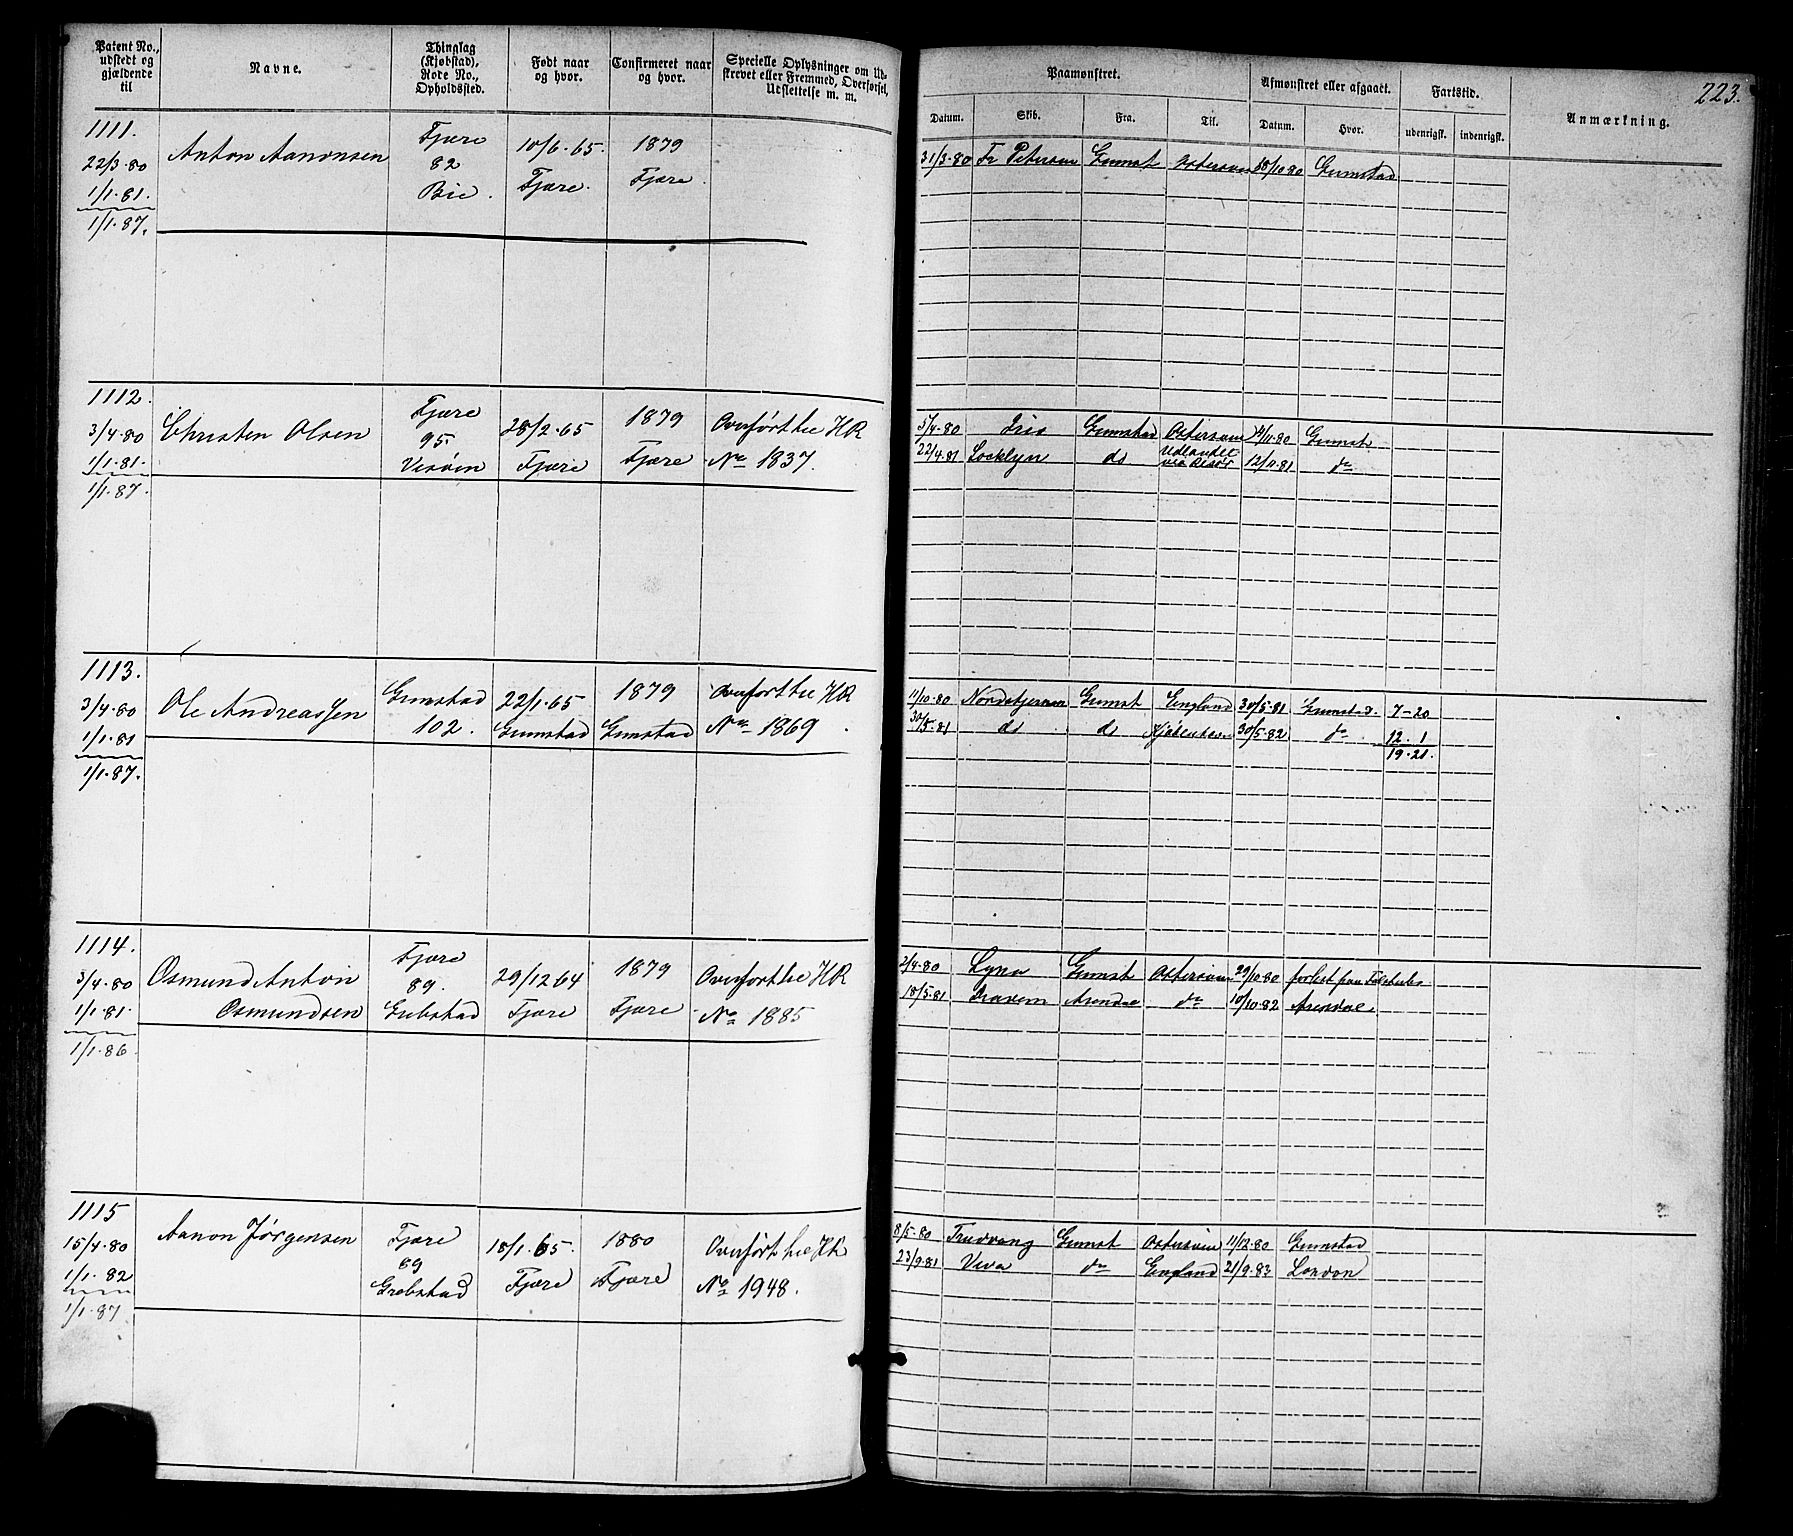 Patent No., udstedt og gjældende til
Navne.
Thinglag (Kjøbstad), Rode No., Opholdssted.
Født naar og hvor.
Confirmeret naar og hvor.
Specielle Oplysninger om Udskrevet eller Fremmed, Overførsel, Udslettelse m. m.
Paamønstret.
Afmønstret eller afgaaet.
Fartstid.
Anmærkning.
223.
Datum. Skib. Fra. Til. Datum. Hvor. udenrigsk. indenrigsk.
1111.
22/3·80
1/1·81.
1/1·87.
Anton Aanonsen
Fjære
82
Bie.
10/6·65.
Fjære.
1879
Fjære
31/3·80 Fr Petersen Grimst Østersøen 18/10·80 Grimstad
1112.
3/4·80
1/1·81.
1/1·87.
Christen Olsen
Fjære
95.
Vesøen
28/2·65
Fjære
1879
Fjære
Overført til HR
No 1837.
5/4·80 Iris Grimstad Østersøen 14/11·80 Grimst
22/4·81 Locklyen do Udlandet 12/11·81 do
1113.
3/4·80
1/1·81
1/1·87.
Ole Andreassen
Grimstad
102.
22/1·65
Grimstad
1879
Grimstad
Overført til HR
No 1869.
11/10·80 Nordstjernen Grimst England 30/5·81 Grimstad. 7-20
30/5·81 do do Kjøbenhavn 30/5·82 do 12. 1
19·21.
1114.
3/4·80
1/1·81.
1/1·86
Osmund Anton
Osmundsen
Fjære
89.
Grebstad
29/12 64
Fjære
1879
Fjære
Overført til HR
No 1885
2/4·80 Lyna Grimst Østersøen 29/10·80 forlist paa
18/5·81 Arendal do 10/10·82 Arendal
1115
15/4·80
1/1·82
1/1·87
Aanon Jørgensen
Fjære
89
Grebstad
18/1·65.
Fjære
1880
Fjære
Overført til HR
No 1948.
8/5·80 Trudvang Grimst Østersøen 11/12·80 Grimstad
23/9·81 Viva do England 21/9·83 London